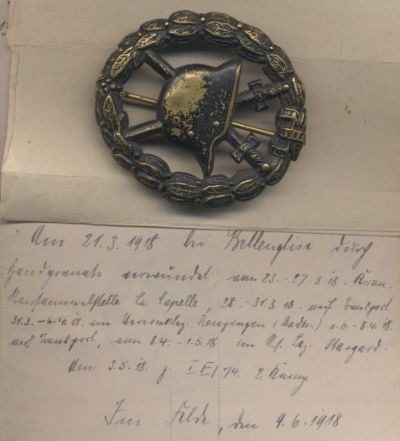 Am 21.3.1918 bei Bellenglise durch
Handgranate verwundet vom 23.-27.3.18. Kran.
La Capelle, 28.-31.3.18. auf Transport
31.3.-6.4.18. im Kenzingen (Baden) 6.-8.4.18.
auf Transport, vom 8.4.-1.5.18 im Laz. Stargard.
Am 3.5.18. z. I E/74. 2. Komp
Im Felde, den 9.6.1918